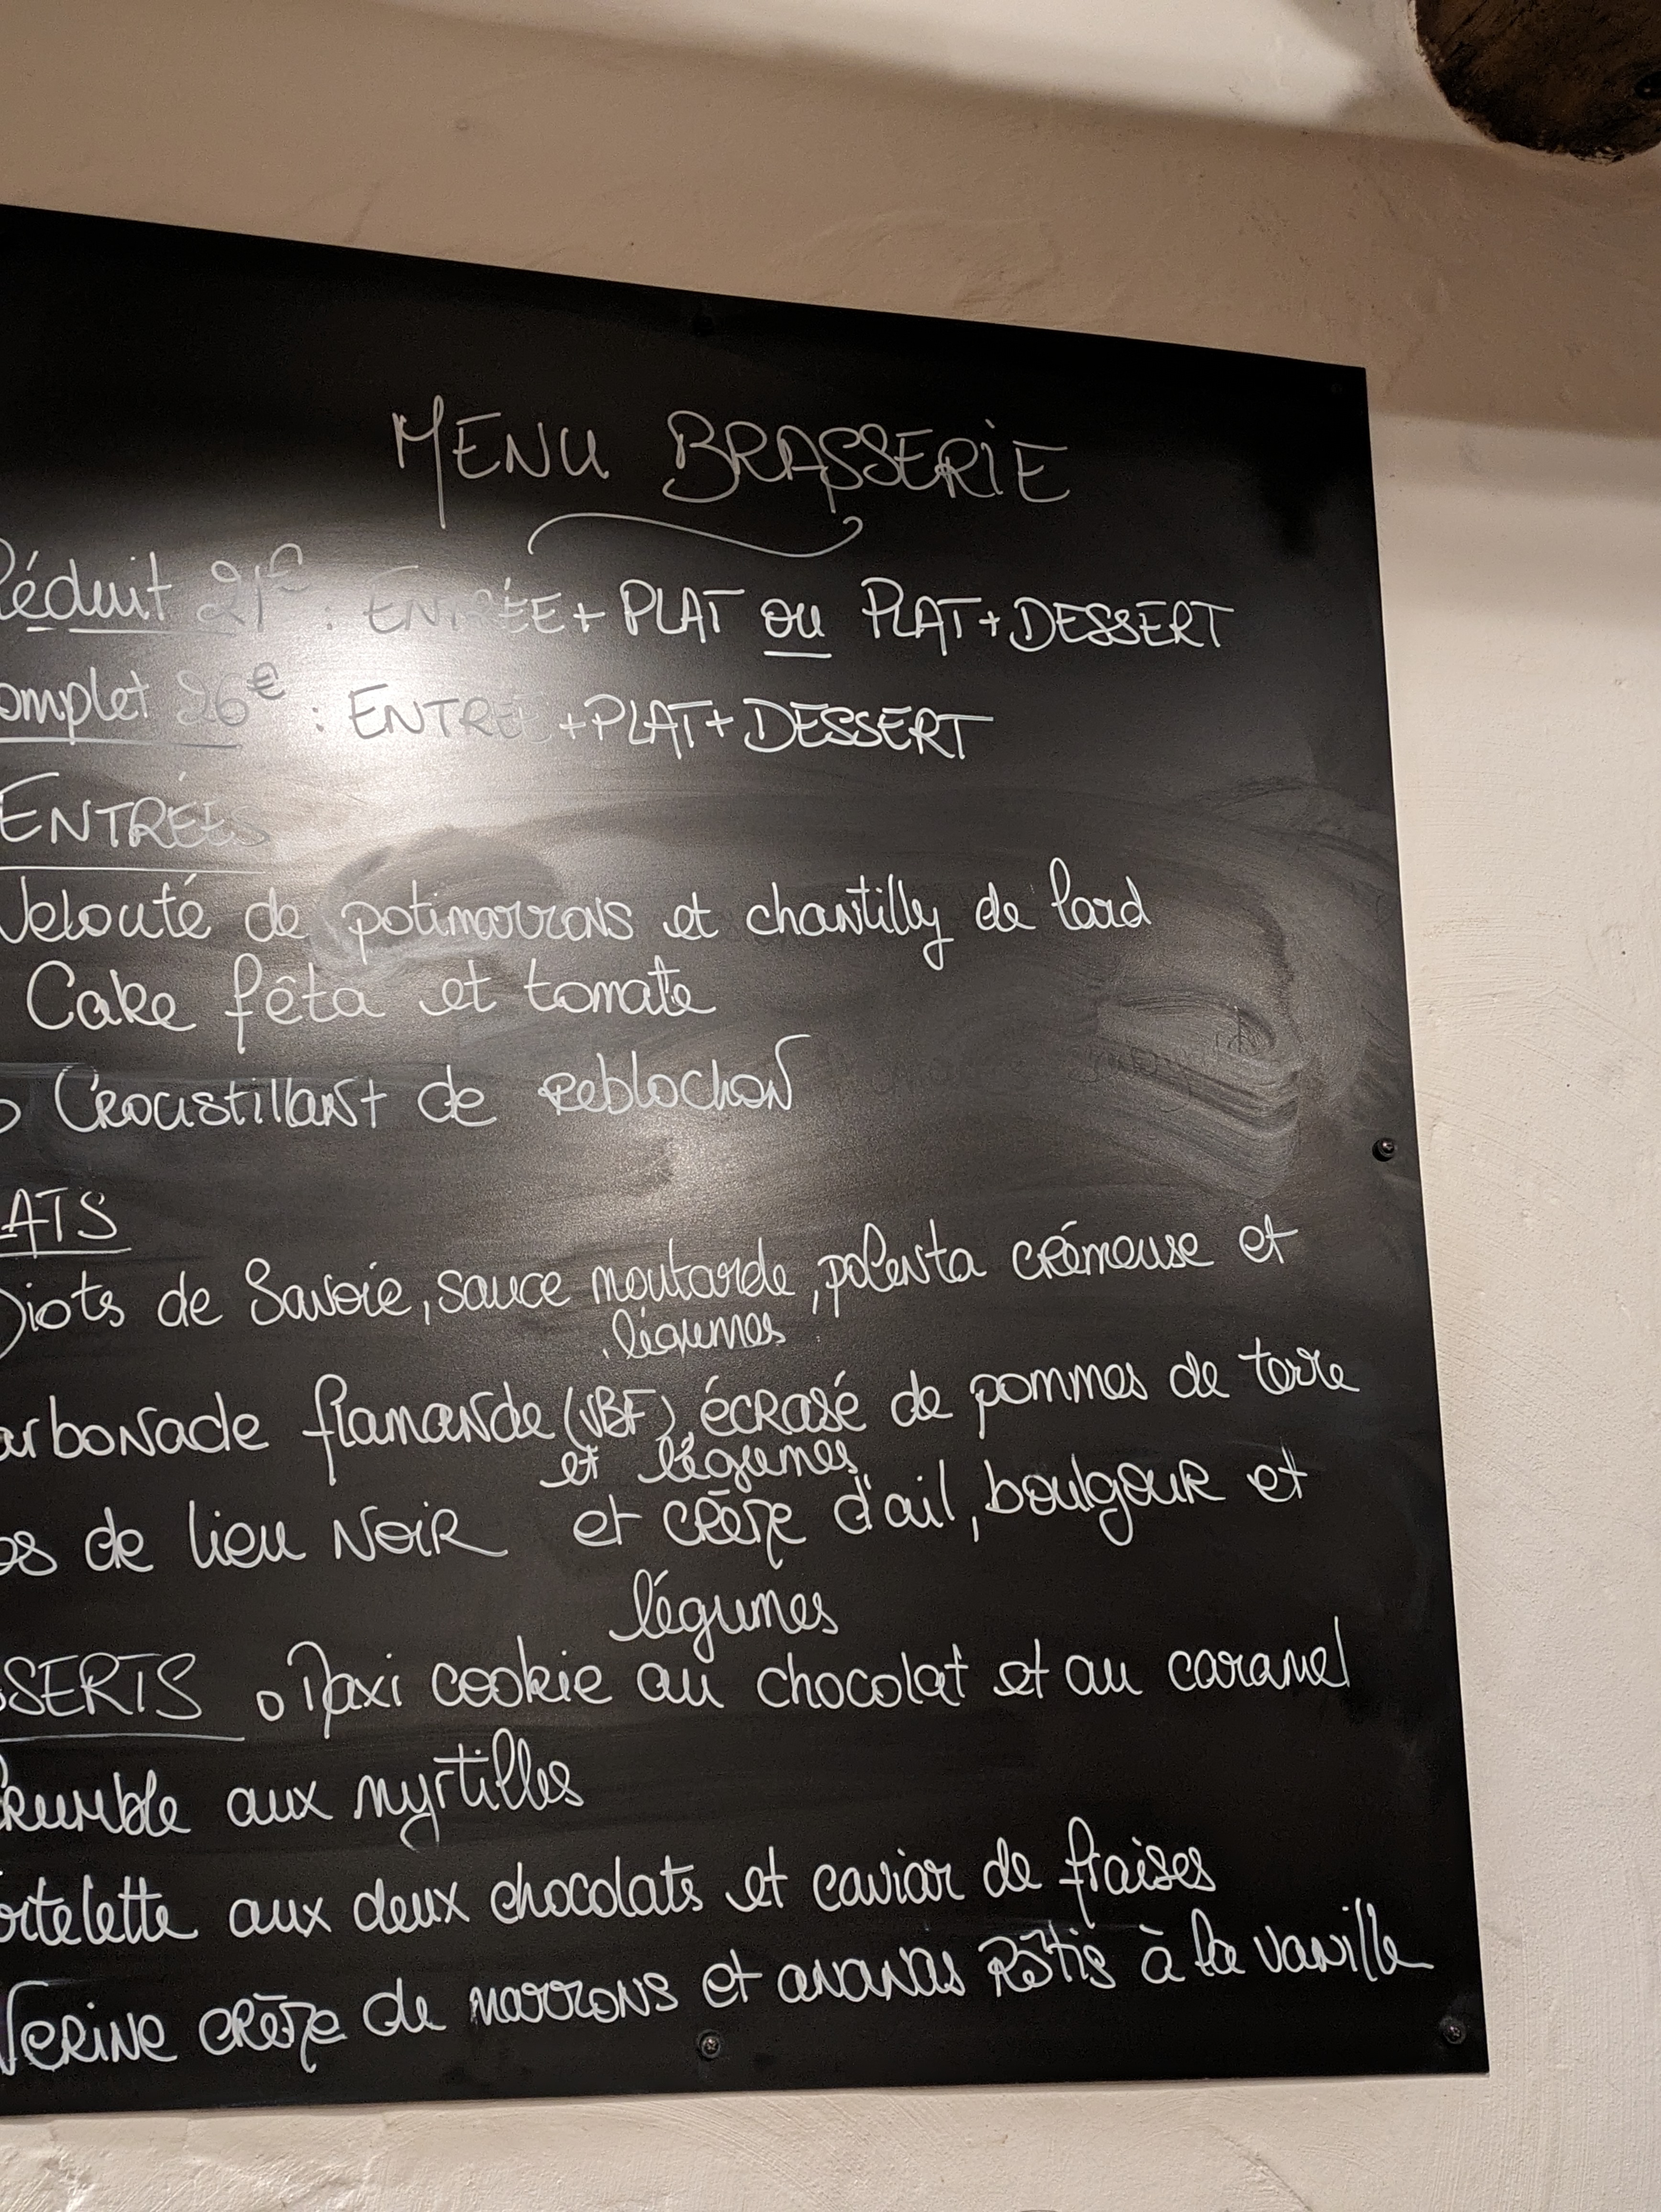 MENU BRASSERIE
Réduit 21€ : ENTRÉE + PLAT ou PLAT + DESSERT
omplet 26€ : ENTRÉE + PLAT + DESSERT
ENTRÉES
Velouté de potimarrons et chantilly de lard
Cake fêta et tomate
o Croustillant de reblochon
ATS
Diots de Savoie, sauce moutarde, polenta crémeuse et
légumes
arbonade flamande (VBF), écrasé de pommes de terre
et légumes
os de lieu Noir et crème d'ail, boulgour et
légumes
SSERTS o Maxi cookie au chocolat et au caramel
Crumble aux myrtilles
artelette aux deux chocolats et caviar de fraises
Verine crème de marrons et ananas Rôtis à la vanille